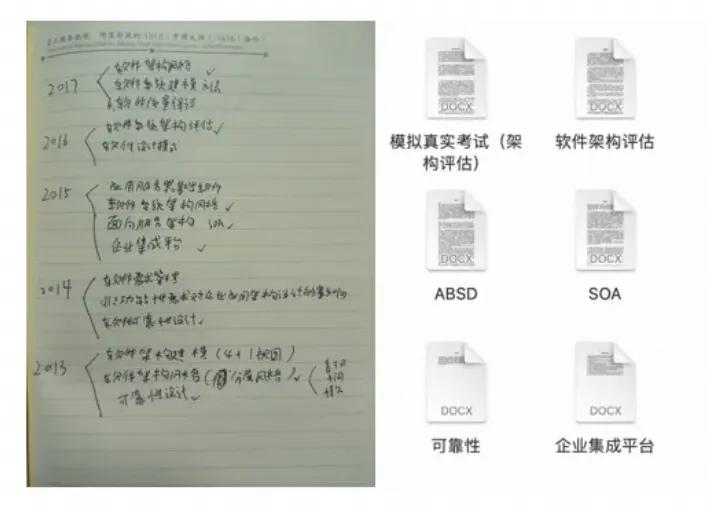 2017
软件架构风格 ✓
软件系统建模方法
软件质量保证
2016
软件系统架构评估 ✓
软件设计模式
2015
应用服务器
软件系统架构风格 ✓
面向服务架构 SOA ✓
企业集成平台 ✓
2014
软件需求管理
非功能性需求对企业应用架构设计的影响
软件可靠性设计 ✓
2013
软件架构建模(4+1视图)
软件架构风格(分层风格)✓
可靠性设计 ✓
DOCX
模拟真实考试（架
构评估）
DOCX
软件架构评估
DOCX
ABSD
DOCX
SOA
DOCX
可靠性
DOCX
企业集成平台